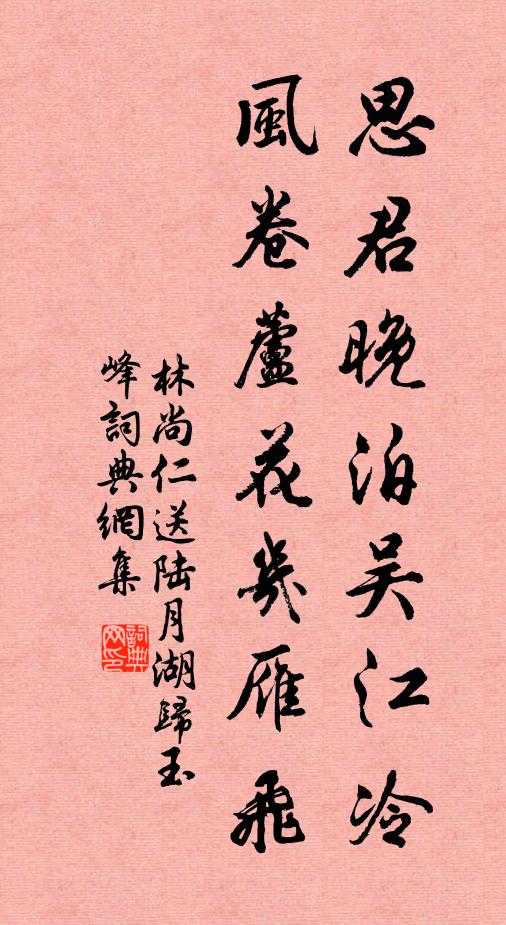 思君晚泊吴江冷
風卷蘆花幾雁飛
林尚仁送陆月湖歸玉
峰詞典網集
詞典网印